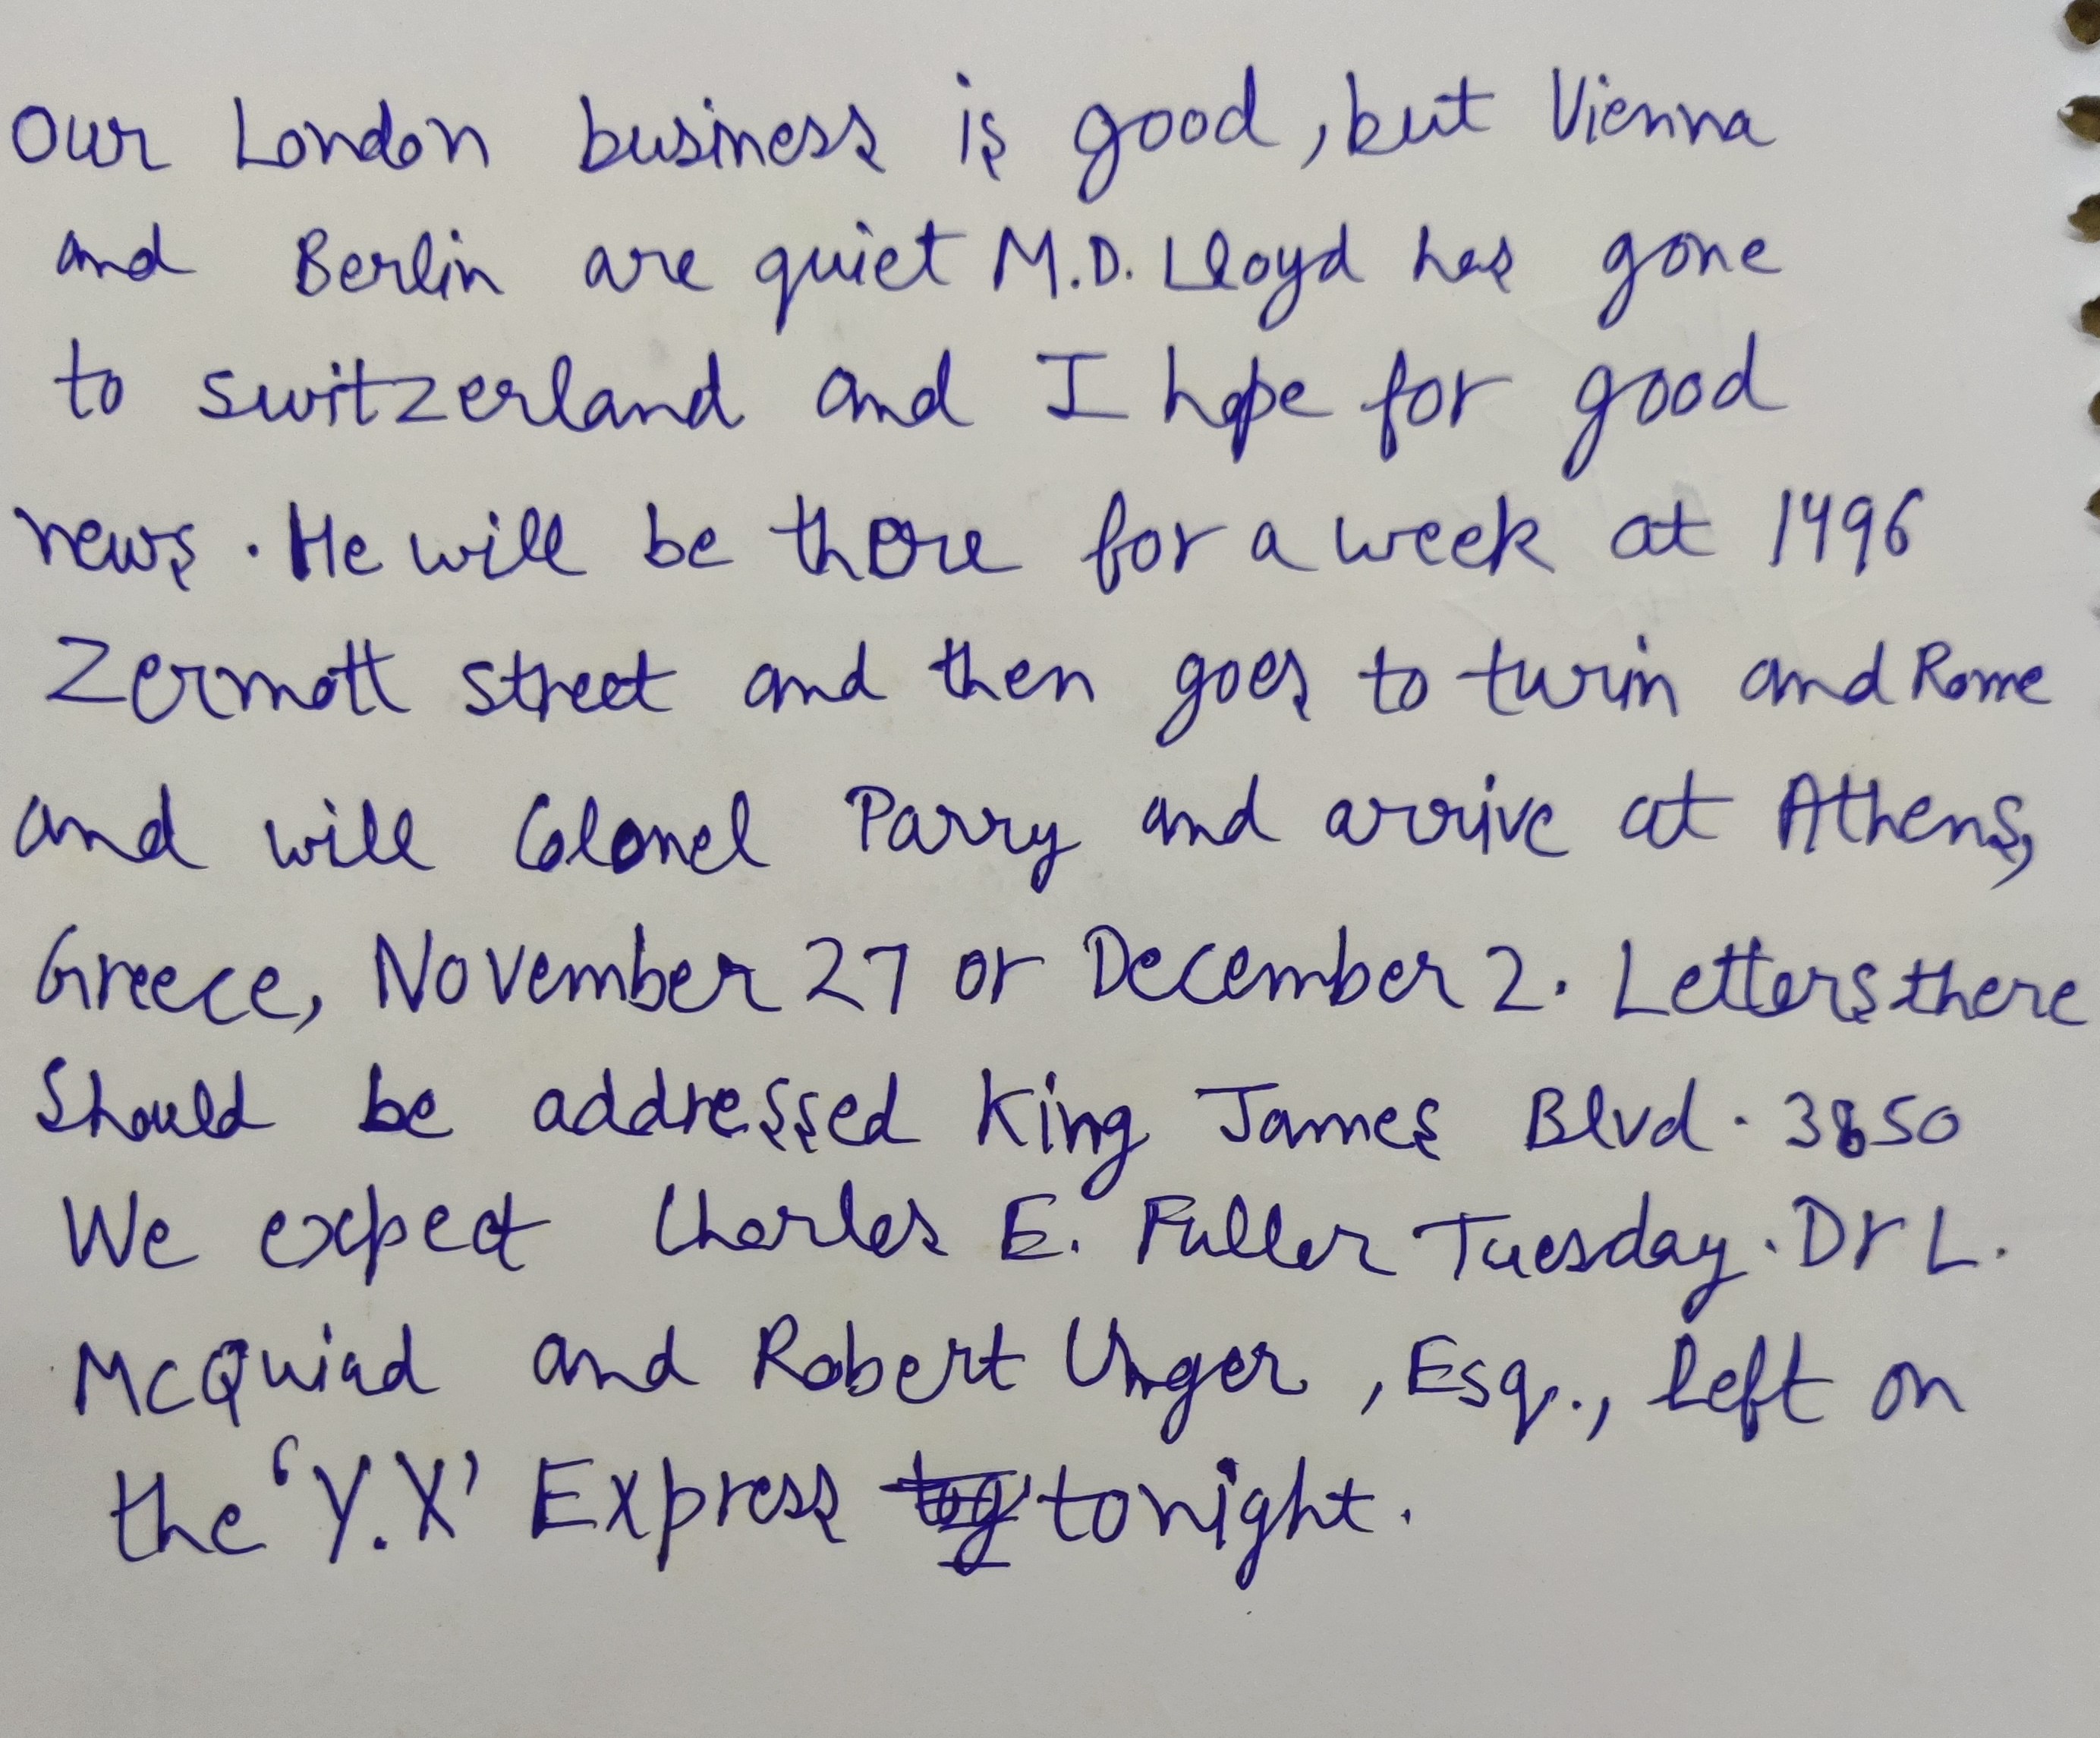 Our London business is good, but Vienna
and Berlin are quiet M.D. Lloyd has gone
to switzerland and I hope for good
news. He will be there for a week at 1496
Zermott street and then goes to turin and Rome
and will Colonel Parry and arrive at Athens,
Greece, November 27 or December 2. Letters there
Should be addressed King James Blvd. 3850
We expect Charles E. Fuller Tuesday. Dr L.
McQuiad and Robert Unger, Esq., left on
the 'Y.X' Express tonight.